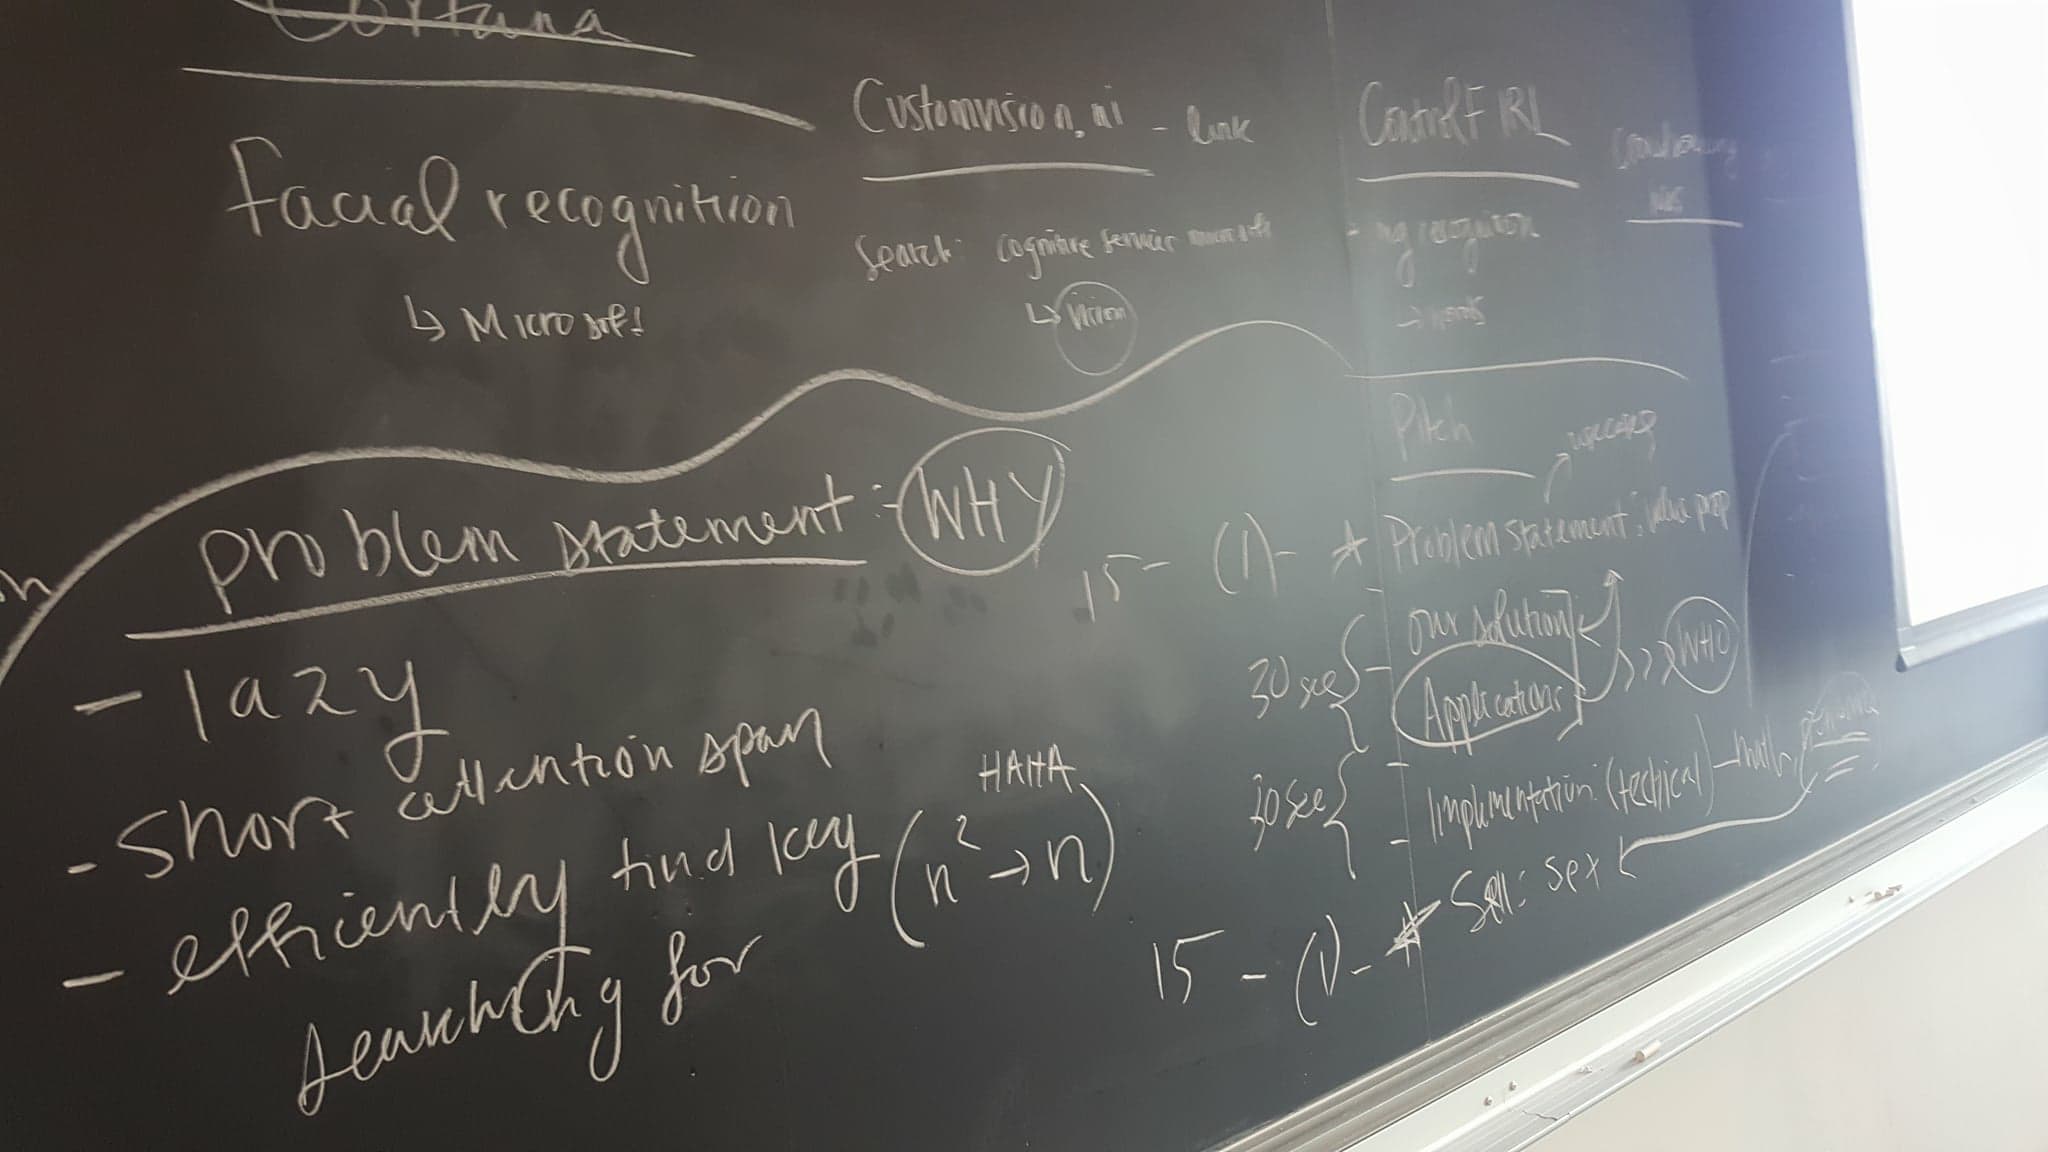 Cortana
Facial recognitiion
↳ Microsoft
Customvision.ai - link
Search: cognitive services microsoft
↳ Vision
Control F IRL
recognition
→ words
Problem statement: - WHY
- lazy
- Short attention span
- efficiently find key (n² → n)
HAHA
searching for
Pitch
usecase
15 - (1) - * Problem statement; value prop
30 sec { - our solution
Applications >>> WHO
30 sec { - Implementation: (techical) - math,
15 - (1) - * Sell: sex